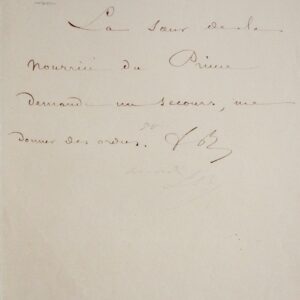 La sœur de la
nourrice du Prince
demande un secours, me
donner des ordres.